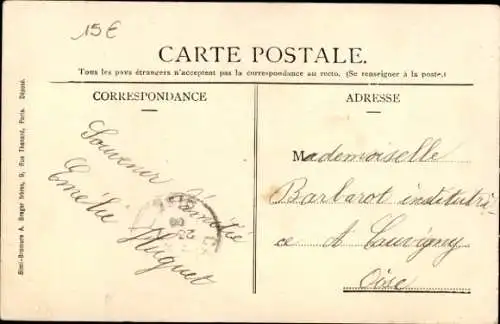 15€
CARTE POSTALE.
Tous les pays étrangers n'acceptent pas la correspondance au recto. (Se renseigner à la poste.)
CORRESPONDANCE
ADRESSE
Souvenir d'amitié
Emélie Huguet
Mademoiselle
Barbarot institutri
ce A Cauvigny
Oise
Simi-Bromure A. Breger frères, 9, Rue Thénard, Paris. Déposé.